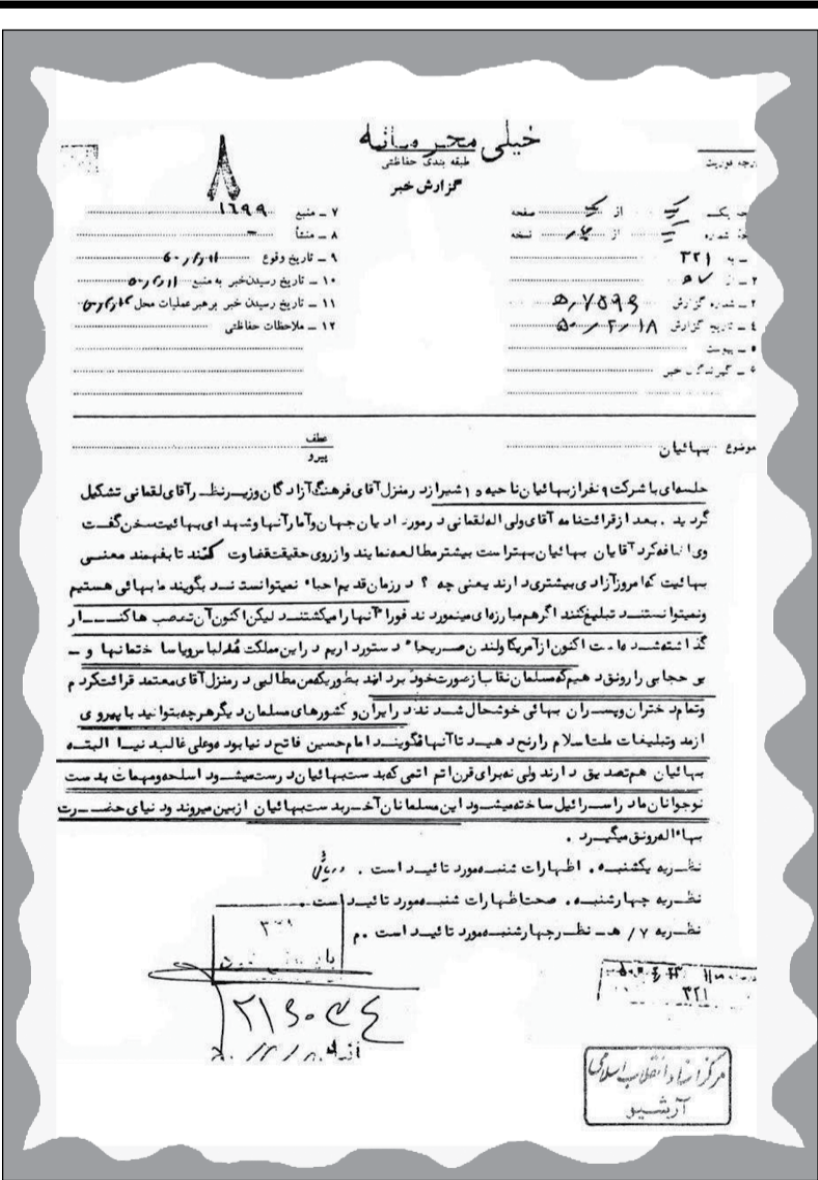 خیلی محرمانه
طبقه بندی حفاظتی
گزارش خبر
درجه فوریت
از صفحه
از نسخه
به ۳۲۱
۳ ـ شماره گزارش
٤ ـ تاریخ گزارش ۵۰/۲/۱۸
۵ ـ پیوست
۶ ـ گیرندگان خبر
۷ ـ منبع ۱۶۹۹
۸ ـ منشأ
۹ ـ تاریخ وقوع
۱۰ ـ تاریخ رسیدن خبر به منبع
۱۱ ـ تاریخ رسیدن خبر برهبر عملیات محل
۱۲ ـ ملاحظات حفاظتی
موضوع بهائیان
عطف
پیرو
جلسه‌ای با شرکت ۹ نفر از بهائیان ناحیه ۱۵ شیراز در منزل آقای فرهنگ آزادگان وزیر نظر آقای لقمانی تشکیل
گردید . بعد از قرائت نامه آقای ولی اله لقمانی در مورد ادیان جهان و آمار آنها و شهدای بهائیت سخن گفت
وی اضافه کرد آقایان بهائیان بهتر است بیشتر مطالعه نمایند و از روی حقیقت قضاوت کنند تا بفهمند معنی
بهائیت که امروز آزادی بیشتری دارند یعنی چه ؟ در زمان قدیم احباء نمیتوانستند بگویند ما بهائی هستیم
ونمیتوانستند تبلیغ کنند اگر هم مبارزه‌ای مینمودند فوراً آنها را میکشتند لیکن اکنون آن تعصب ها کنار
گذاشته شده است اکنون از آمریکا ولندن صریحاً دستور داریم در این مملکت مُد لباس ویا ساختمانها و ـ
بی حجابی را رونق دهیم که مسلمان نقاب از صورت خود بردارند بطوریکه من مطالبی در منزل آقای معتمد قرائت کردم
وتمام دختران وپسران بهائی خوشحال شدند در ایران و کشورهای مسلمان دیگر هر چه بتوانید با پیروی
از مد وتبلیغات ملت اسلام را رنج دهید تا آنها نگویند امام حسین فاتح دنیا بوده وعلی غالب دنیا البته
بهائیان هم تصدیق دارند ولی نه برای قرن اتم اتمی که بدست بهائیان درست میشود اسلحه ومهمات بدست
نوجوانان ما در اسرائیل ساخته میشود این مسلمانان آخر بدست بهائیان از بین میروند ودنیای حضرت
بهاءاله رونق میگیرد .
نظریه یکشنبه . اظهارات شنبه مورد تائید است .
نظریه چهارشنبه . صحت اظهارات شنبه مورد تائید است .
نظریه ۷/ هـ ـ نظر چهارشنبه مورد تائید است .م
۳۲۱
مرکز اسناد انقلاب اسلامی
آرشیو